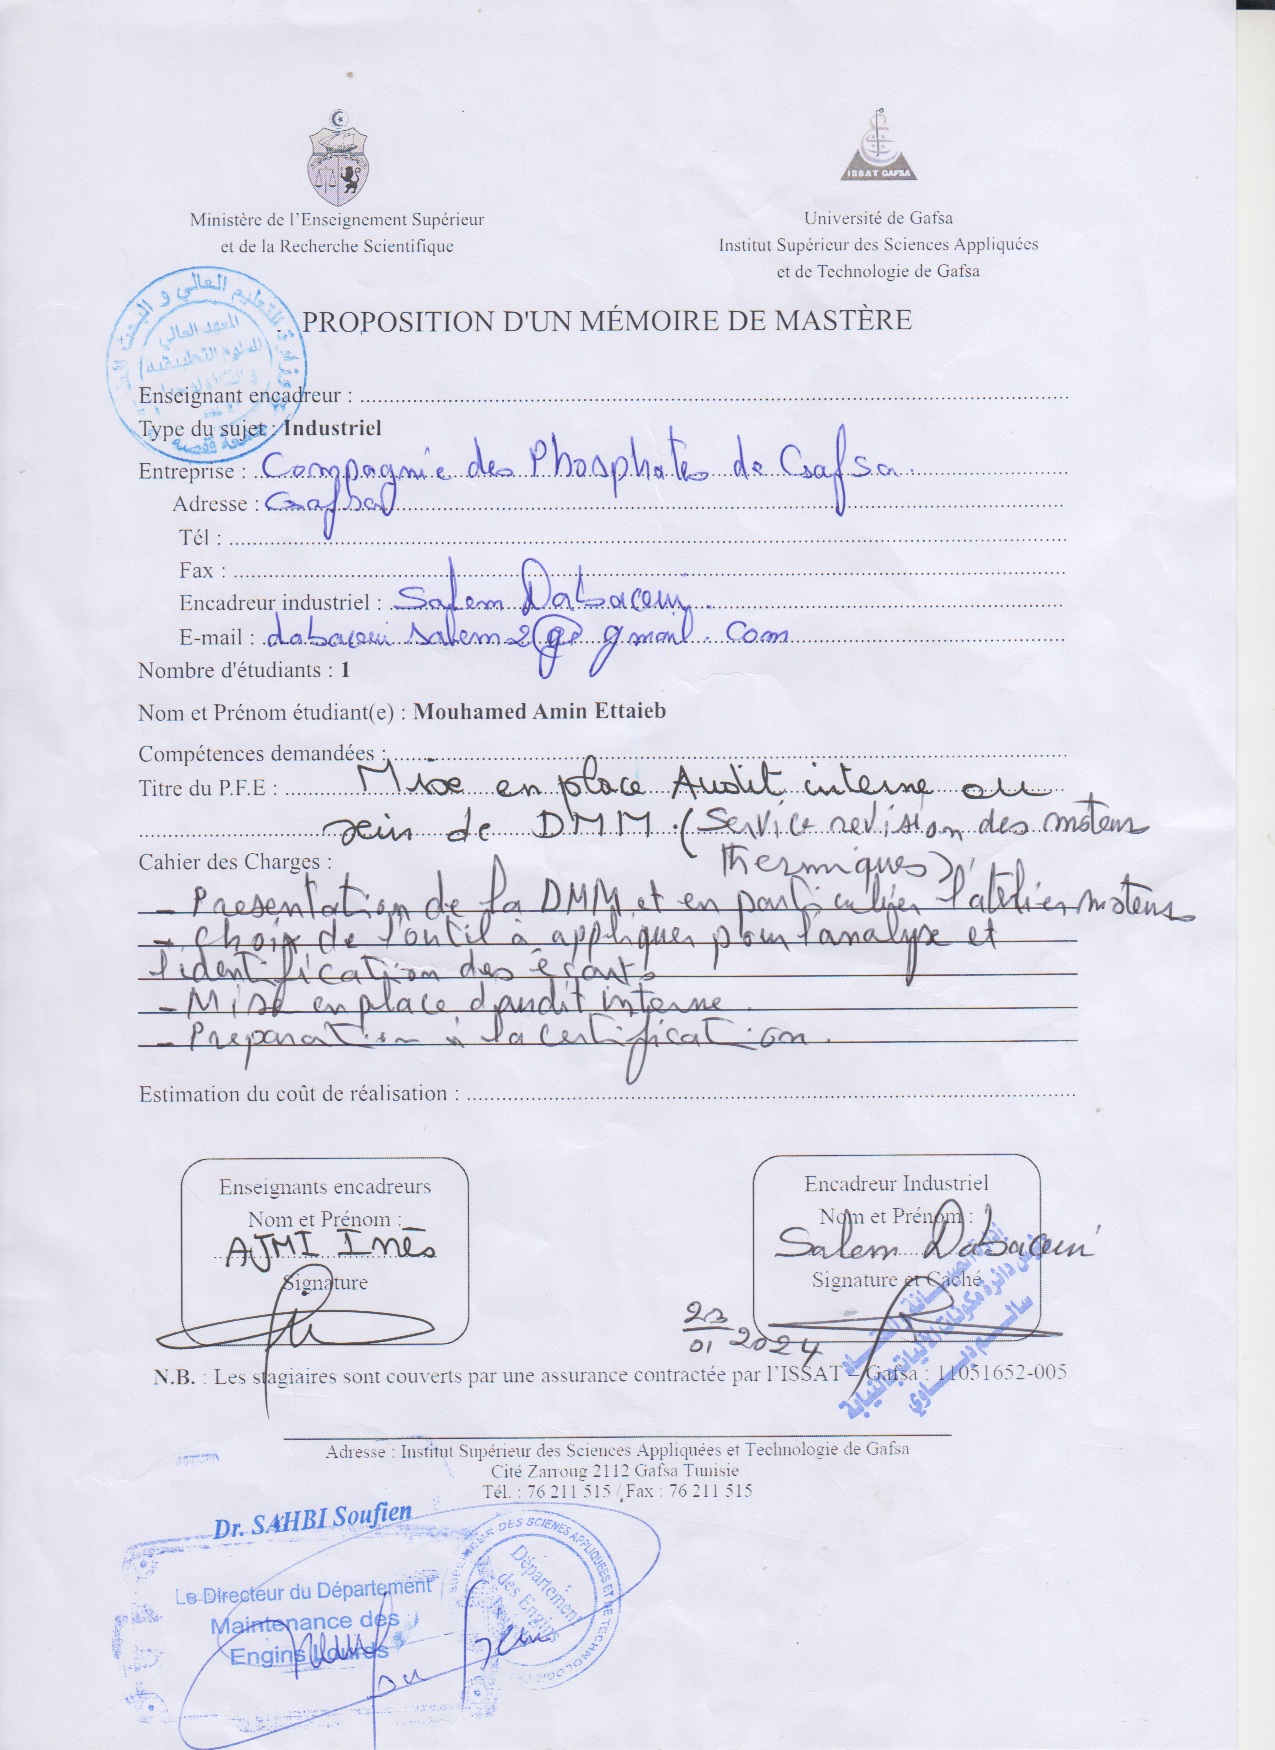 ISSAT GAFSA
Ministère de l'Enseignement Supérieur
et de la Recherche Scientifique
Université de Gafsa
Institut Supérieur des Sciences Appliquées
et de Technologie de Gafsa
PROPOSITION D'UN MÉMOIRE DE MASTÈRE
المعهد العالي
للعلوم التطبيقية
Enseignant encadreur :
Type du sujet : Industriel
Entreprise : Compagnie des Phosphates de Gafsa.
Adresse : Gafsa
Tél :
Fax :
Encadreur industriel : Salem Dabaceui.
E-mail : dabaceui salem2@ gmail. Com
Nombre d'étudiants : 1
Nom et Prénom étudiant(e) : Mouhamed Amin Ettaieb
Compétences demandées :
Titre du P.F.E : Mise en place Audit interne au
sein de DMM. (Service revision des moteurs
thermiques)
Cahier des Charges :
- Presentation de la DMM et en particulier l'atelier moteurs
- Choix de l'outil à appliquer pour l'analyse et
l'identification des écarts
- Mise en place d'audit interne.
- Preparation à la certification.
Estimation du coût de réalisation :
Enseignants encadreurs
Nom et Prénom :
AJMI Inès
Signature
Encadreur Industriel
Nom et Prénom :
Salem Dabaceui
Signature et Caché
23/01 2024
N.B. : Les stagiaires sont couverts par une assurance contractée par l'ISSAT – Gafsa : 11051652-005
Adresse : Institut Supérieur des Sciences Appliquées et Technologie de Gafsa
Cité Zarroug 2112 Gafsa Tunisie
Tél. : 76 211 515 / Fax : 76 211 515
Dr. SAHBI Soufien
Le Directeur du Département
Maintenance des
Engins Lourds
Département
des Engins